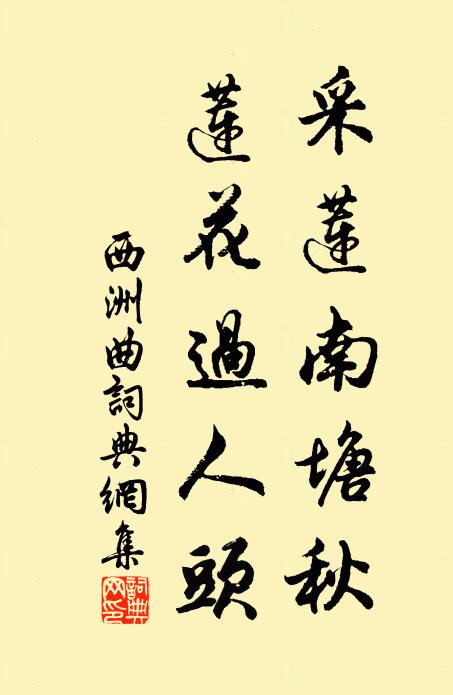 采蓮南塘秋
蓮花過人頭
西洲曲詞典網集
詞典网印